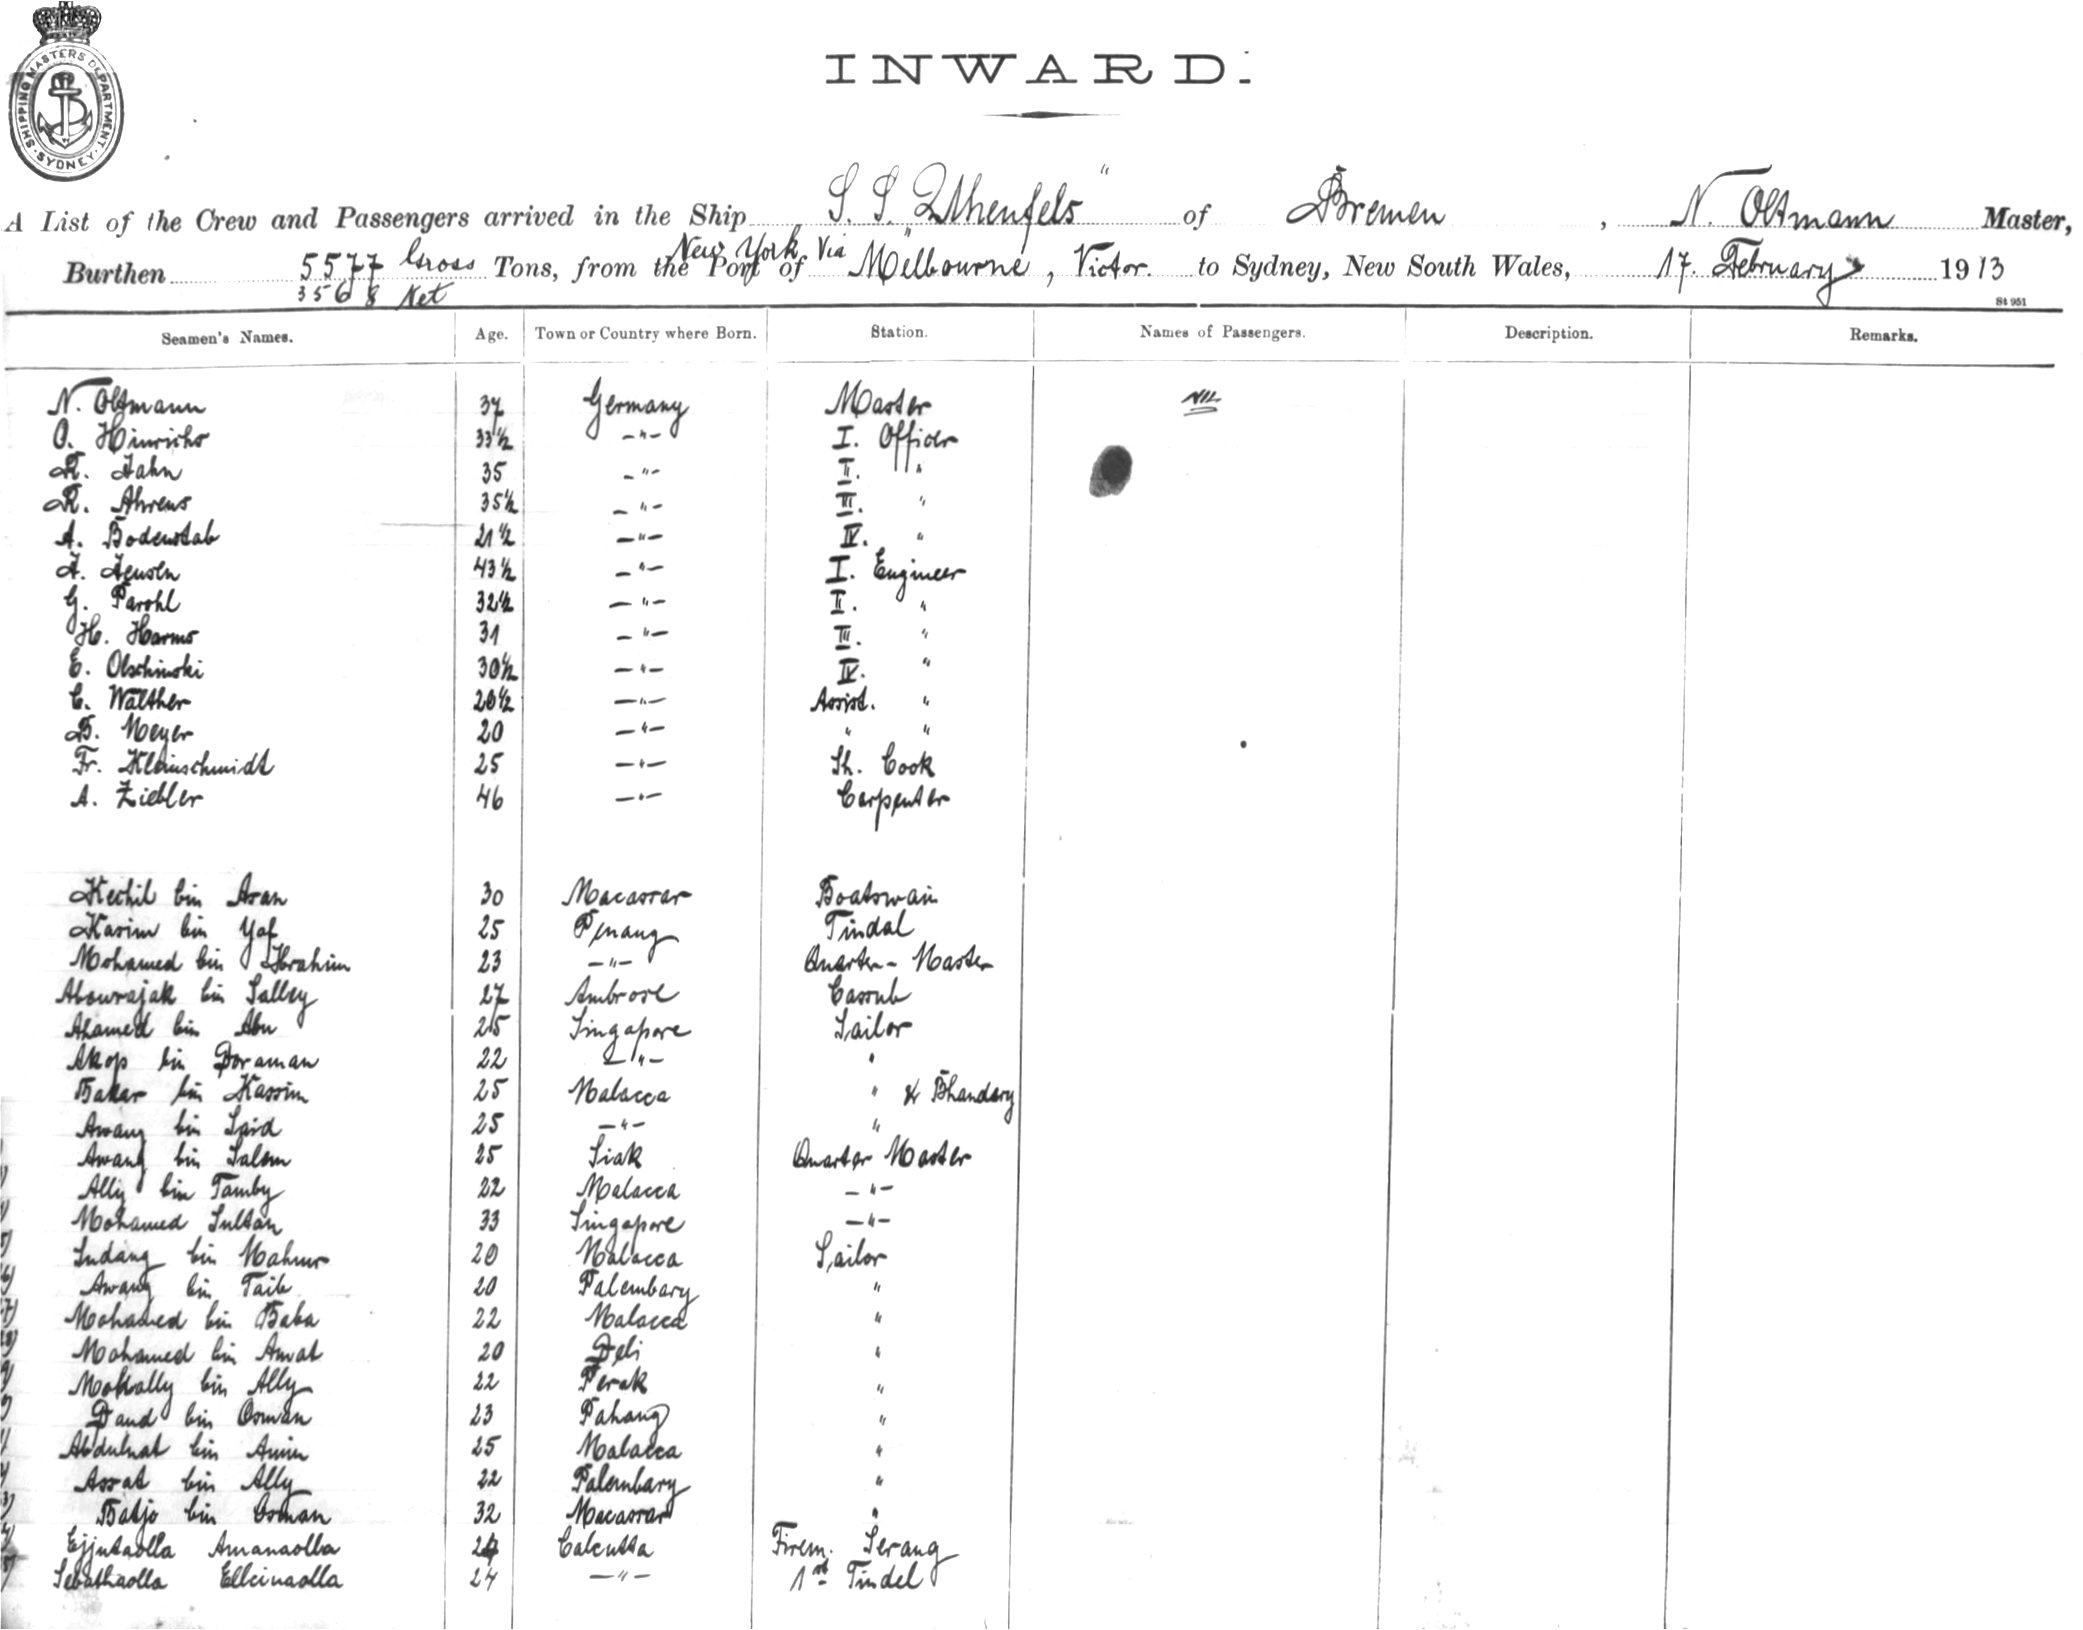 SHIPPING MASTERS DEPARTMENT · SYDNEY ·
INWARD.
A List of the Crew and Passengers arrived in the Ship S. S. "Uhenfels" of Bremen, N. Oltmann Master,
Burthen 5577 Gross Tons, from the Port of New York via Melbourne, Victor. to Sydney, New South Wales, 17. February 1913
3568 Net
St 951
Seamen's Names. Age. Town or Country where Born. Station. Names of Passengers. Description. Remarks.
N. Oltmann 37 Germany Master NIL
O. Hinrichs 33½ —"— I. Officer
R. Jahn 35 —"— II. "
R. Ahrens 35½ —"— III. "
A. Bodenstab 21½ —"— IV. "
J. Jensen 43½ —"— I. Engineer
G. Parohl 32½ —"— II. "
H. Harms 31 —"— III. "
E. Olschinski 30½ —"— IV. "
C. Walther 20½ —"— Assist. "
B. Meyer 20 —"— " "
Fr. Kleinschmidt 25 —"— Sh. Cook
A. Ziebler 46 —"— Carpenter
Kechil bin Asan 30 Macassar Boatswain
Karim bin Yaf 25 Penang Tindal
Mohamed bin Ibrahim 23 —"— Quarter-Master
Abowrajak bin Salley 27 Ambrose Cassub
Ahamed bin Abu 25 Singapore Sailor
Akop bin Doraman 22 —"— "
Bakar bin Kassim 25 Malacca " & Bhandary
Awang bin Said 25 —"— "
Awang bin Salem 25 Siak Quarter Master
Ally bin Tamby 22 Malacca —"—
Mohamed Sultan 33 Singapore —"—
Indang bin Mahmur 20 Malacca Sailor
6) Awang bin Taib 20 Palembary "
7) Mohamed bin Baba 22 Malacca "
8) Mohamed bin Amat 20 Deli "
9) Mokally bin Ally 22 Perak "
Daud bin Osman 23 Pahang "
Abdulnat bin Amin 25 Malacca "
Assat bin Ally 22 Palembary "
3) Batjo bin Osman 32 Macassar "
Ejjutaolla Amanaolla 24 Calcutta Firem. Serang
Sebathaolla Elleinaolla 24 —"— 1st Tindel